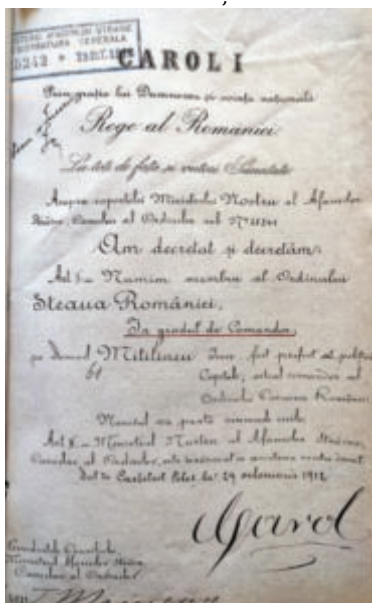 CAROL I
Prin grația lui Dumnezeu și voința națională
Rege al României.
La toți de față și viitori Sănătate
Asupra raportului Ministrului Nostru al Afacerilor
Străine, Cancelar al Ordinelor sub Nº
Am decretat și decretăm:
Art I. Numim membru al Ordinului
Steaua României,
In gradul de Comandor,
pe Domnul Mitilineu fost prefect al poliției
61 Capitalei, actual comandor al
Ordinului Coroana României
Art II. Ministrul Nostru al Afacerilor Străine,
Cancelar al Ordinelor, este însărcinat cu
Dat în Castelul Peleș, la 29 octomvrie 1912
Carol
Ministrul Afacerilor Străine
Cancelar al Ordinelor